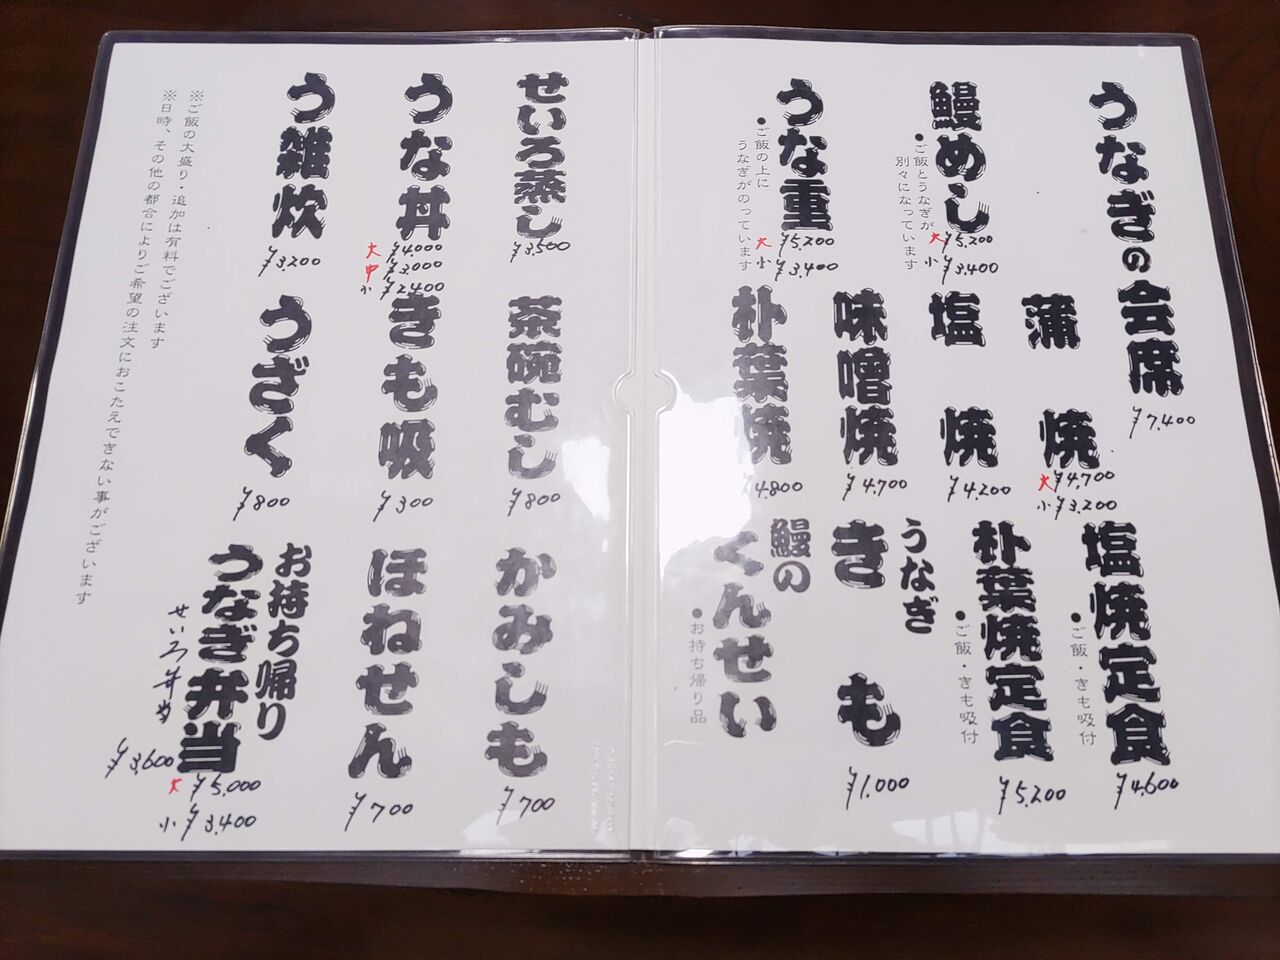 うなぎの会席
¥7,400
鰻めし
●ご飯とうなぎが
別々になっています
大 ¥5,200
小 ¥3,400
うな重
●ご飯の上に
うなぎがのっています
大 ¥5,200
小 ¥3,400
蒲焼
大 ¥4,700
小 ¥3,200
塩焼
¥4,200
味噌焼
¥4,700
朴葉焼
¥4,800
塩焼定食
●ご飯・きも吸付
¥4,600
朴葉焼定食
●ご飯・きも吸付
¥5,200
うなぎ
きも
¥1,000
鰻の
くんせい
●お持ち帰り品
せいろ蒸し
¥3,500
うな丼
大 ¥4,000
中 ¥3,000
小 ¥2,400
う雑炊
¥3,200
茶碗むし
¥800
きも吸
¥300
うざく
¥800
かみしも
¥700
ほねせん
¥700
お持ち帰り
うなぎ弁当
大 ¥5,000
小 ¥3,400
せいろ弁当
¥3,600
※ご飯の大盛り・追加は有料でございます
※日時、その他の都合によりご希望の注文におこたえできない事がございます